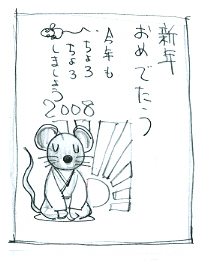 新年
おめでたう
今年も
ちょろ
ちょろ
しましょう
2008